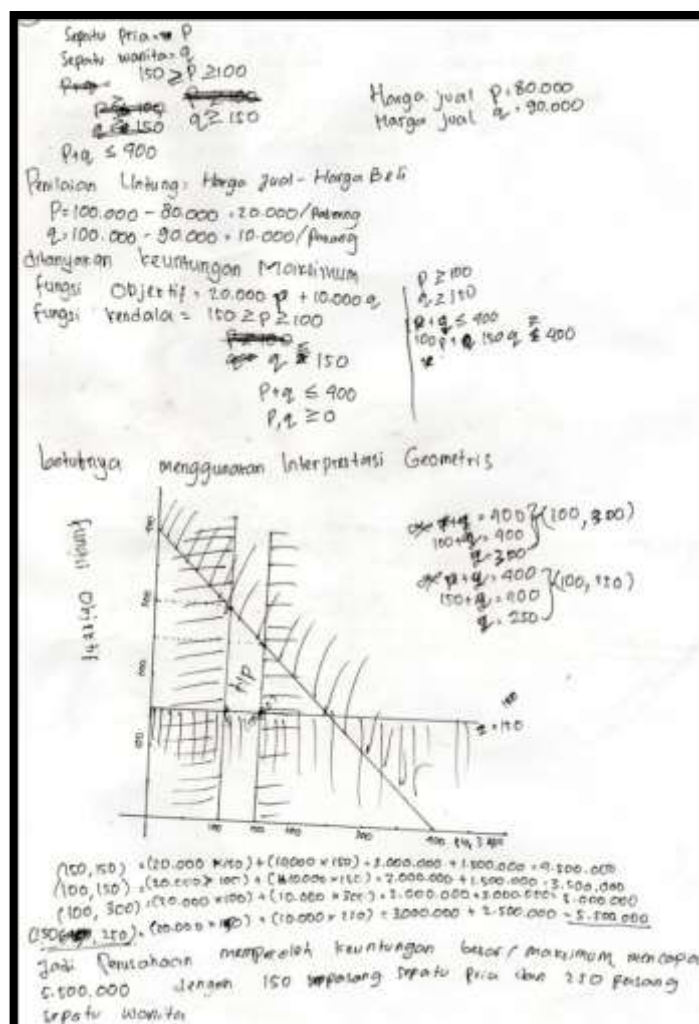 Sepatu Pria = P
Sepatu wanita = q
150 ≥ P ≥ 100
q ≥ 150
P+q ≤ 400
Harga jual P = 80.000
Harga jual q = 90.000
Penilaian Untung = Harga Jual - Harga Beli
P = 100.000 - 80.000 = 20.000/Pasang
q = 100.000 - 90.000 = 10.000/Pasang
ditanyakan keuntungan Maksimum
fungsi Objektif = 20.000 p + 10.000 q
fungsi kendala = 150 ≥ p ≥ 100
q ≥ 150
P+q ≤ 400
P,q ≥ 0
P ≥ 100
q ≥ 150
p+q ≤ 400
100p + 150q ≤ 400
menggunakan Interprestasi Geometris
p+q = 400
100+q = 400
q = 300
(100, 300)
p+q = 400
150+q = 400
q = 250
fungsi Objektif
400
300
200
100
HP
q = 150
100
150
300
400
(150,150) = (20.000 x 150) + (10.000 x 150) = 3.000.000 + 1.500.000 = 4.500.000
(100,150) = (20.000 x 100) + (10.000 x 150) = 2.000.000 + 1.500.000 = 3.500.000
(100,300) = (20.000 x 100) + (10.000 x 300) = 2.000.000 + 3.000.000 = 5.000.000
(150, 250) = (20.000 x 150) + (10.000 x 250) = 3.000.000 + 2.500.000 = 5.500.000
Jadi Perusahaan memperoleh keuntungan besar/maksimum mencapai
5.500.000 dengan 150 sepasang sepatu pria dan 250 pasang
sepatu wanita